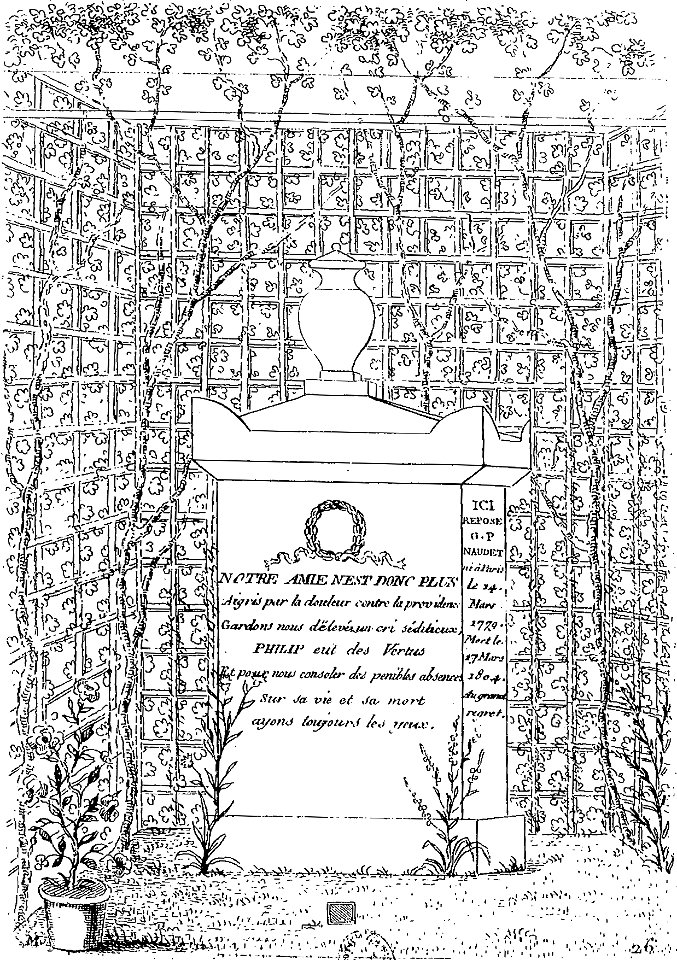 NOTRE AMIE N'EST DONC PLUS
Aigris par la douleur contre la providence
Gardons nous d'élever un cri séditieux,
PHILIP eut des Vertus
Et pour nous consoler des penibles absences
Sur sa vie et sa mort
ayons toujours les yeux.
ICI
REPOSE
G. P
NAUDET
né à Paris
le 24.
Mars
1779.
Mort le
27 Mars
1804.
Au grand
regret.
M
26